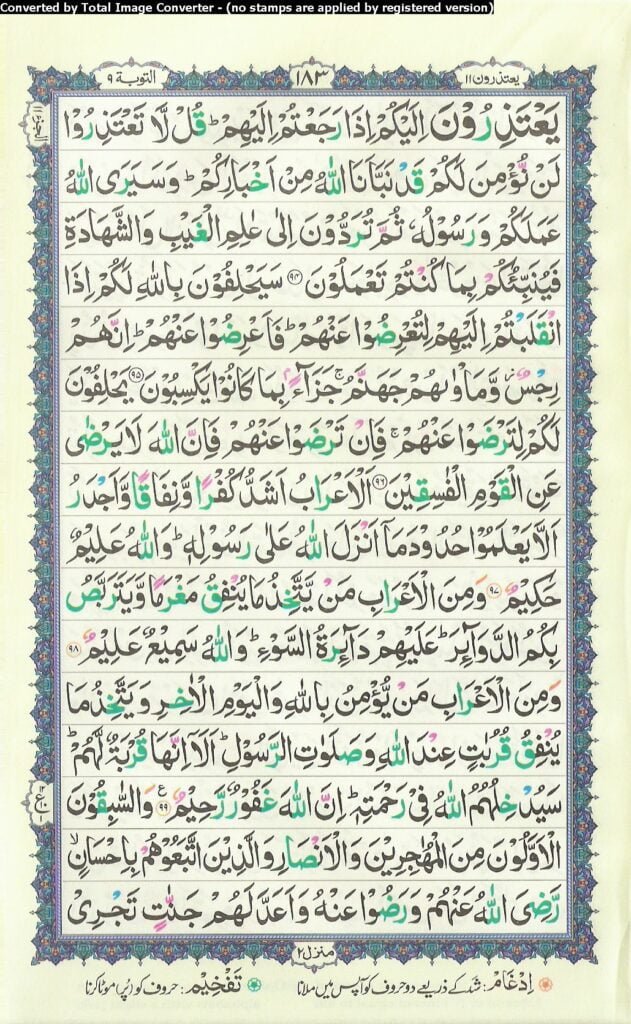 Converted by Total Image Converter - (no stamps are applied by registered version)
یعتذرون ۱۱
۱۸۳
التوبة ۹
الجزء ۱۱
يَعْتَذِرُوْنَ اِلَيْكُمْ اِذَا رَجَعْتُمْ اِلَيْهِمْ ؕ قُلْ لَّا تَعْتَذِرُوْا
لَنْ نُّؤْمِنَ لَكُمْ قَدْ نَبَّاَنَا اللّٰهُ مِنْ اَخْبَارِكُمْ ؕ وَسَيَرَى اللّٰهُ
عَمَلَكُمْ وَرَسُوْلُهٗ ثُمَّ تُرَدُّوْنَ اِلٰى عٰلِمِ الْغَيْبِ وَالشَّهَادَةِ
فَيُنَبِّئُكُمْ بِمَا كُنْتُمْ تَعْمَلُوْنَ ﴿۹۴﴾ سَيَحْلِفُوْنَ بِاللّٰهِ لَكُمْ اِذَا
انْقَلَبْتُمْ اِلَيْهِمْ لِتُعْرِضُوْا عَنْهُمْ ؕ فَاَعْرِضُوْا عَنْهُمْ ؕ اِنَّهُمْ
رِجْسٌ ز وَّمَاْوٰىهُمْ جَهَنَّمُ ۚ جَزَآءًۢ بِمَا كَانُوْا يَكْسِبُوْنَ ﴿۹۵﴾ يَحْلِفُوْنَ
لَكُمْ لِتَرْضَوْا عَنْهُمْ ۚ فَاِنْ تَرْضَوْا عَنْهُمْ فَاِنَّ اللّٰهَ لَا يَرْضٰى
عَنِ الْقَوْمِ الْفٰسِقِيْنَ ﴿۹۶﴾ اَلْاَعْرَابُ اَشَدُّ كُفْرًا وَّنِفَاقًا وَّاَجْدَرُ
اَلَّا يَعْلَمُوْا حُدُوْدَ مَآ اَنْزَلَ اللّٰهُ عَلٰى رَسُوْلِهٖ ؕ وَاللّٰهُ عَلِيْمٌ
حَكِيْمٌ ﴿۹۷﴾ وَمِنَ الْاَعْرَابِ مَنْ يَّتَّخِذُ مَا يُنْفِقُ مَغْرَمًا وَّيَتَرَبَّصُ
بِكُمُ الدَّوَآئِرَ ؕ عَلَيْهِمْ دَآئِرَةُ السَّوْءِ ؕ وَاللّٰهُ سَمِيْعٌ عَلِيْمٌ ﴿۹۸﴾
وَمِنَ الْاَعْرَابِ مَنْ يُّؤْمِنُ بِاللّٰهِ وَالْيَوْمِ الْاٰخِرِ وَيَتَّخِذُ مَا
يُنْفِقُ قُرُبٰتٍ عِنْدَ اللّٰهِ وَصَلَوٰتِ الرَّسُوْلِ ؕ اَلَآ اِنَّهَا قُرْبَةٌ لَّهُمْ ؕ
سَيُدْخِلُهُمُ اللّٰهُ فِيْ رَحْمَتِهٖ ؕ اِنَّ اللّٰهَ غَفُوْرٌ رَّحِيْمٌ ﴿۹۹﴾ ع وَالسّٰبِقُوْنَ
الْاَوَّلُوْنَ مِنَ الْمُهٰجِرِيْنَ وَالْاَنْصَارِ وَالَّذِيْنَ اتَّبَعُوْهُمْ بِاِحْسَانٍ ۙ
رَّضِيَ اللّٰهُ عَنْهُمْ وَرَضُوْا عَنْهُ وَاَعَدَّ لَهُمْ جَنّٰتٍ تَجْرِيْ
منزل ۲
اِدْغَام: شد کے ذریعے دو حروف کو آپس میں ملانا
تَفْخِیْم: حروف کو (پُر) موٹا کرنا